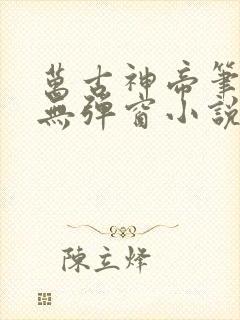 萬古神帝筆
無彈窗小說
陳立烽